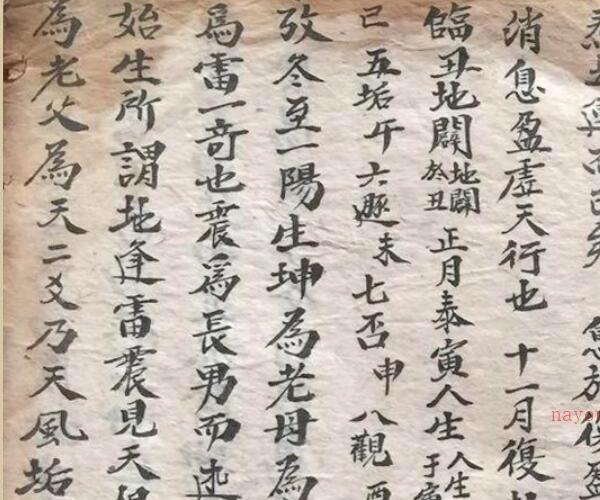 消息盈虛天行也 十一月復
臨丑地闢地闢於丑 正月泰寅人生人生于寅
巳五垢午六遯未七否申八觀酉
攷冬至一陽生坤為老母為
爲雷一奇也震爲長男而
始生所謂地逢雷震見天
為老父為天二爻乃天風垢
nayo